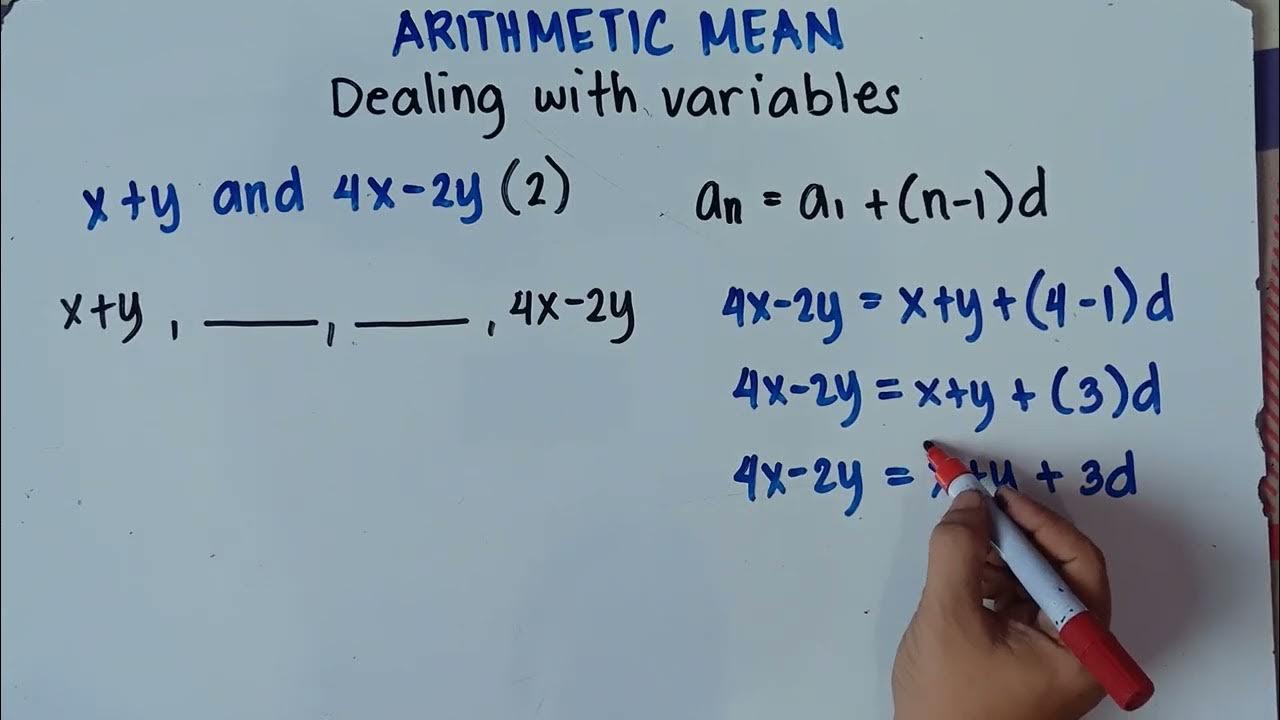 ARITHMETIC MEAN
Dealing with variables
x+y and 4x-2y (2)
an = a1 + (n-1)d
x+y , ____, ____, 4x-2y
4x-2y = x+y+(4-1)d
4x-2y = x+y + (3)d
4x-2y = x+y + 3d